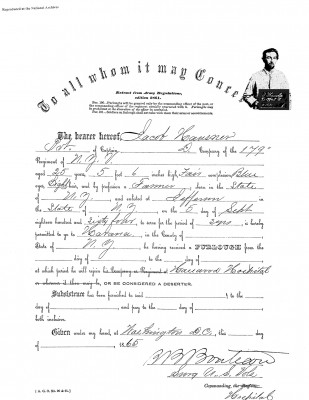 Reproduced at the National Archives
To all whom it may Concern
Extract from Army Regulations,
edition 1861.
The bearer hereof, Jacob Hausner
Pvt. of Captain D Company of the 179"
Regiment of N.Y.V
aged 25 years, 5 feet 6 inches high, Fair complexion, Blue
eyes, Light hair, and by profession a Farmer, born in the State
of N.Y., and enlisted at Jefferson in
the State of N.Y on the 5 day of Sept
eighteen hundred and sixty four to serve for the period of 2 yrs is hereby
permitted to go to Havana, in the County of
State of N Y he having received a FURLOUGH from the
day of to the day of
at which period he will rejoin his Company or Regiment at Harewood Hospital
or wherever it then may be, OR BE CONSIDERED A DESERTER.
Subsistence has been furnished to said to the
day of and pay to the day of
both inclusive.
Given under my hand, at Washington D.C., this
day of 1865
Surg U.S. Vols
Commanding the
Hospital